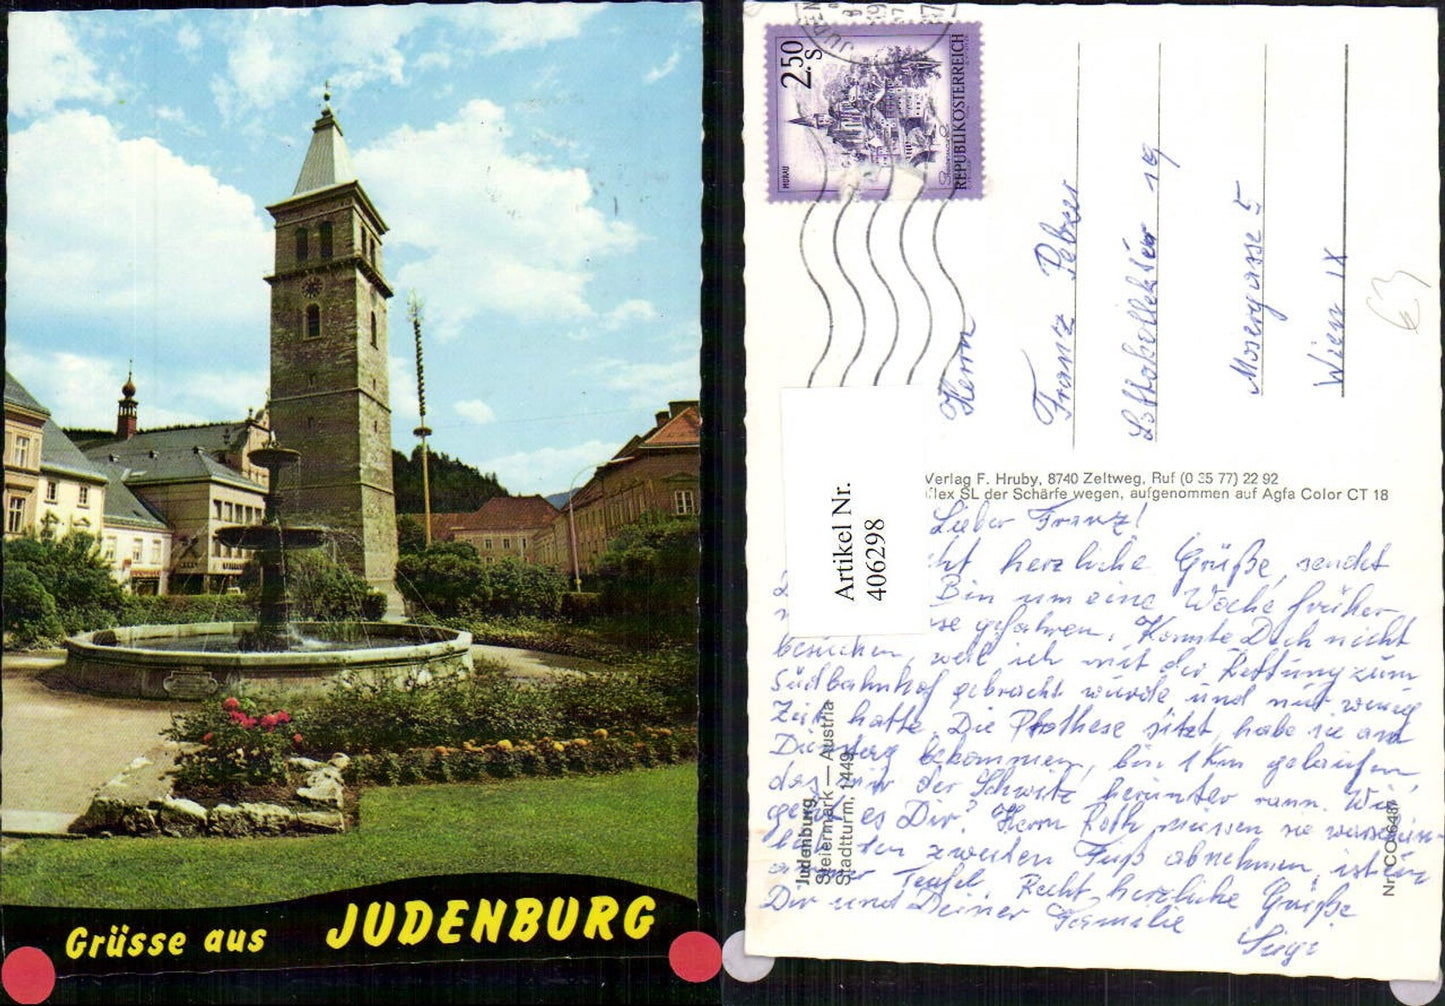 Grüsse aus JUDENBURG
2.50 S
MURAU
REPUBLIK ÖSTERREICH
Herrn
Franz
Lottokollektür 19
Mosergasse 5
Wien IX
63
Verlag F. Hruby, 8740 Zeltweg, Ruf (0 35 77) 22 92
flex SL der Schärfe wegen, aufgenommen auf Agfa Color CT 18
Artikel Nr.
406298
Lieber Franz!
herzliche Grüße, sendet
Bin um eine Woche früher
gefahren. Konnte Dich nicht
besuchen, weil ich mit der Rettung zum
Südbahnhof gebracht wurde, und nur wenig
Zeit hatte. Die Prothese sitzt, habe sie am
Dienstag bekommen, bin 1 Km gelaufen,
das mir der Schwitz herunter rann. Wie
geht es Dir? Herrn Roth müssen sie warschein-
lich den zweiten Fuß abnehmen, ist ein
armer Teufel. Recht herzliche Grüße
Dir und Deiner Familie
Sigi
Judenburg
Steiermark — Austria
Stadtturm, 1449